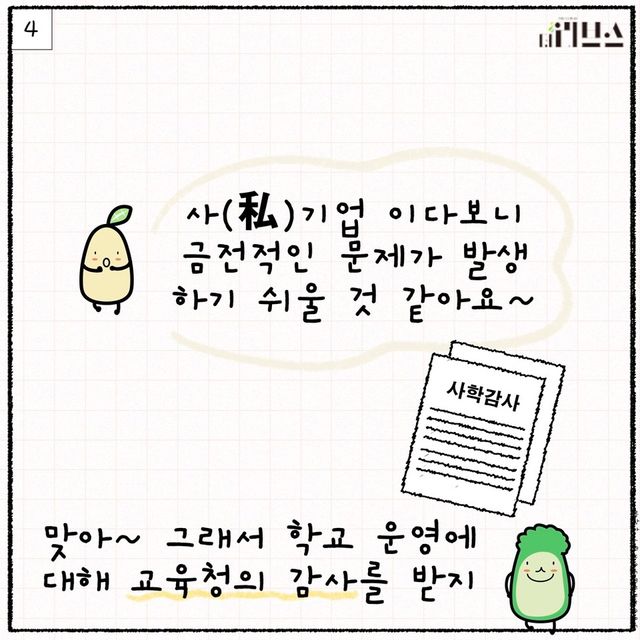 4
사(私)기업 이다보니
금전적인 문제가 발생
하기 쉬울 것 같아요~
사학감사
맞아~ 그래서 학교 운영에
대해 교육청의 감사를 받지